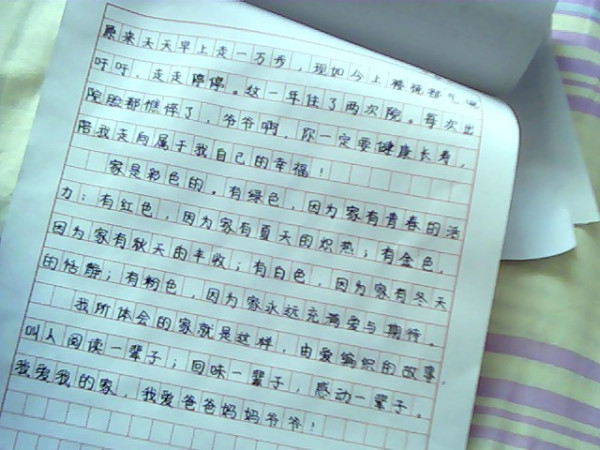 原来天天早上走一万步，现如今上楼梯都气喘
吁吁，走走停停。这一年住了两次院。每次出
院脸都憔悴了，爷爷啊，你一定要健康长寿，
陪我走向属于我自己的幸福！
家是彩色的。有绿色，因为家有青春的活
力；有红色，因为家有夏天的炽热；有金色，
因为家有秋天的丰收；有白色，因为家有冬天
的恬静；有粉色，因为家永远充满爱与期待。
我所体会的家就是这样，由爱编织的故事，
叫人阅读一辈子；回味一辈子，感动一辈子。
我爱我的家，我爱爸爸妈妈爷爷！